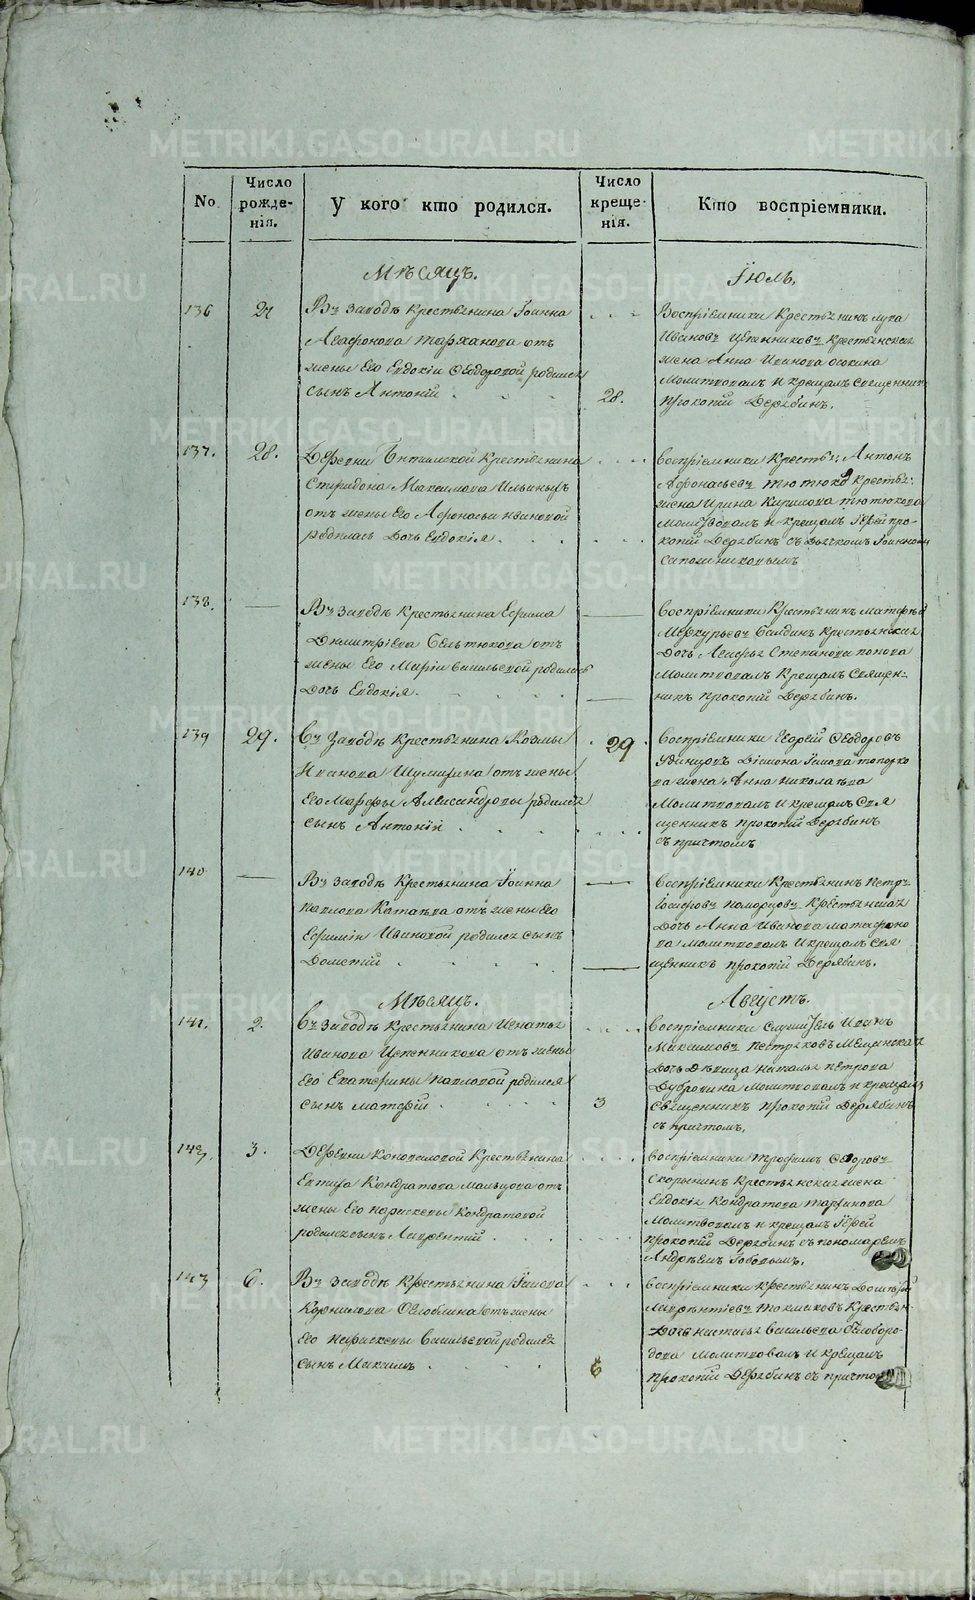 METRIKI.GASO-URAL.RU
No. Число рожденія. У кого кто родился. Число крещенія. Кто воспріемники.
Мѣсяцъ. Іюль.
136 27 Въ заводѣ крестьянина Іоанна
Агафонова Тарханова отъ
жены его Евдокіи Ѳеодоровой родился
сынъ Антоній 28.
Воспріемники крестьянинъ Лука
Ивановъ Цепенниковъ крестьянская
жена Анна Иванова
Молитвовалъ и крещалъ священникъ
Прокопій Дерябинъ.
137. 28. Деревни крестьянина
Спиридона Максимова Ильиныхъ
отъ жены его Афонасьи Ивановой
родилась дочь Евдокія.
Воспріемники крестья: Антонъ
Афонасьевъ крестья:
жена Ирина Кирилова Тютюкова
молитвовалъ и крещалъ Іерей Про-
копій Дерябинъ съ дьячкомъ Іоанномъ
Сапожниковымъ
138. Въ заводѣ крестьянина Ефима
Димитріева отъ
жены его Маріи Васильевой родилась
дочь Евдокія.
Воспріемники крестьянинъ Матфѣй
Меркурьевъ Балдинъ крестьянская
дочь Агафья Степанова Попова
Молитвовалъ крещалъ священ-
никъ Прокопій Дерябинъ.
139 29. Въ заводѣ крестьянина Козмы
Иванова отъ жены
его Марфы Александровы родился
сынъ Антоній 29
Воспріемники Георгій Ѳеодоровъ
жена Анна Николаева
Молитвовалъ и крещалъ свя
щенникъ Прокопій Дерябинъ
съ причтомъ
140 Въ заводѣ крестьянина Іоанна
Павлова Катаева отъ жены его
Ефиміи Ивановой родился сынъ
Дометій
Воспріемники крестьянинъ Петръ
Іосифовъ Поморцовъ крестьянская
дочь Анна Иванова
Молитвовалъ и крещалъ свя
щенникъ Прокопій Дерябинъ.
Мѣсяцъ. Августъ.
141. 2. Въ заводѣ крестьянина Игнатья
Иванова Цепенникова отъ жены
его Екатерины Павловой родился
сынъ Матфій 3
Воспріемники служитель Иванъ
Максимовъ Пестряковъ мещанская
дочь дѣвица Наталья Петрова
Дубровина молитвовалъ и крещалъ
священникъ Прокопій Дерябинъ
съ причтомъ.
142. 3. Деревни Коноваловой крестьянина
Кондратова Мальцова отъ
жены его Параскевы Кондратовой
родился сынъ Лаврентій
Воспріемники Трофимъ
Скорынинъ крестьянская жена
Евдокія Кондратова
Молитвовалъ и крещалъ Іерей
Прокопій Дерябинъ съ пономаремъ
Андреемъ
143 6. Въ заводѣ крестьянина
Корнилова отъ жены
его Параскевы Васильевой родился
сынъ Максимъ 6
Воспріемники крестьянинъ
Лаврентіевъ Токмаковъ крестьян-
дочь Настасья Васильева Бѣлоборо-
дова молитвовалъ и крещалъ
Прокопій Дерябинъ съ причтомъ